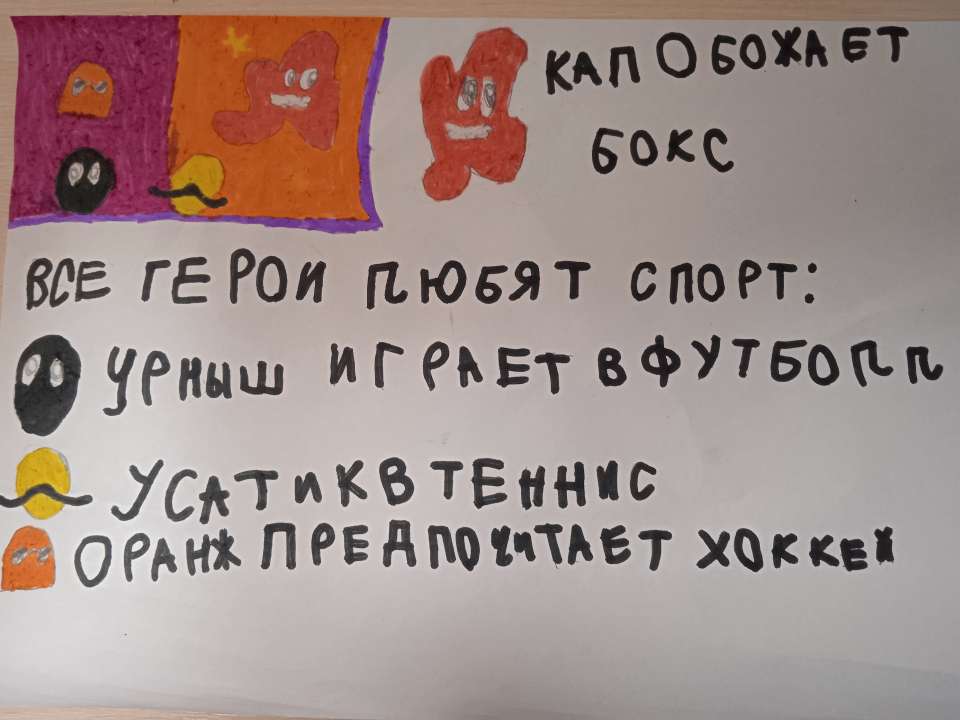 КАП ОБОЖАЕТ
БОКС
ВСЕ ГЕРОИ ЛЮБЯТ СПОРТ:
УРНЫШ ИГРАЕТ В ФУТБОЛЛ
УСАТИК В ТЕННИС
ОРАНЖ ПРЕДПОЧИТАЕТ ХОККЕЙ